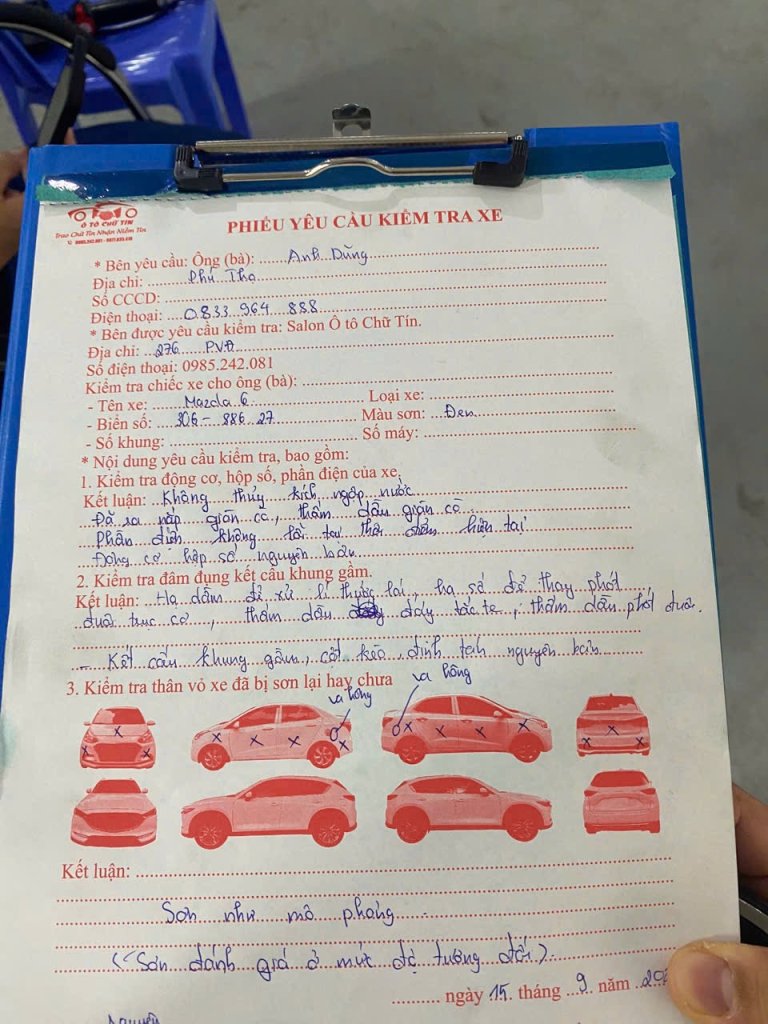 Ô TÔ CHỮ TÍN
Trao Chữ Tín Nhận Niềm Tin
PHIẾU YÊU CẦU KIỂM TRA XE
* Bên yêu cầu: Ông (bà): Anh Dũng
Địa chỉ: Phú Thọ
Số CCCD:
Điện thoại: 0833 964 888
* Bên được yêu cầu kiểm tra: Salon Ô tô Chữ Tín.
Địa chỉ: 276 PVĐ
Số điện thoại: 0985.242.081
Kiểm tra chiếc xe cho ông (bà):
- Tên xe: Mazda 6 Loại xe:
- Biển số: 30G - 886 27 Màu sơn: Đen
- Số khung: Số máy:
* Nội dung yêu cầu kiểm tra, bao gồm:
1. Kiểm tra động cơ, hộp số, phần điện của xe.
Kết luận: Không thủy kích ngập nước
Đã ra nắp giàn cò, thấm dầu giàn cò
Phần điện không lỗi tại thời điểm hiện tại
Động cơ hộp số nguyên bản
2. Kiểm tra đâm đụng kết cấu khung gầm.
Kết luận: Hạ dầm để xử lí thước lái, hạ số để thay phớt
đuôi trục cơ, thấm dầu dây tắc te, thấm dầu phớt đuôi.
- Kết cấu khung gầm, cột kèo, định hình nguyên bản
3. Kiểm tra thân vỏ xe đã bị sơn lại hay chưa
va hông
va hông
Kết luận:
Sơn như mô phỏng
(Sơn đánh giá ở mức độ tương đối).
ngày 15 tháng 9 năm 202